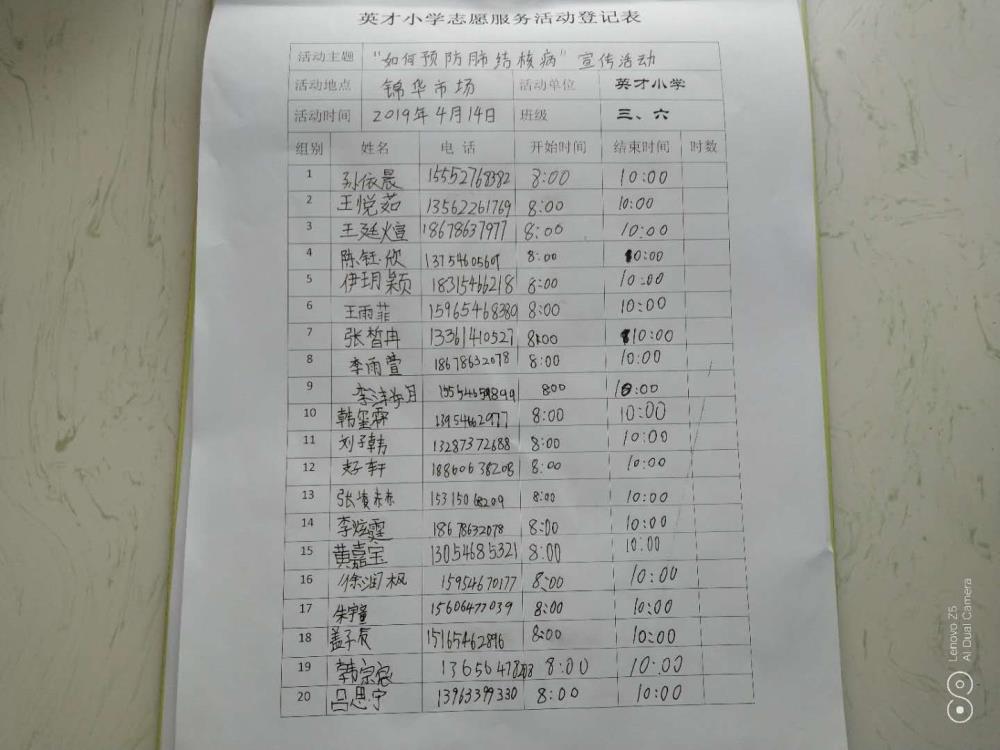 英才小学志愿服务活动登记表
活动主题 "如何预防肺结核病"宣传活动
活动地点 锦华市场 活动单位 英才小学
活动时间 2019年4月14日 班级 三、六
组别 姓名 电话 开始时间 结束时间 时数
1 孙依晨 15552768382 8:00 10:00
2 王悦茹 13562261769 8:00 10:00
3 王廷煊 18678637977 8:00 10:00
4 陈钰欣 8:00 10:00
5 伊玥颖 18315466218 8:00 10:00
6 王雨菲 15965468380 8:00 10:00
7 张皙冉 13361410527 8:00 10:00
8 李雨萱 18678632078 8:00 10:00
9 8:00 10:00
10 韩玺霖 13954662977 8:00 10:00
11 刘子韩 13287372688 8:00 10:00
12 轩 18860638208 8:00 10:00
13 张 8:00 10:00
14 李炫霆 18678632078 8:00 10:00
15 黄嘉宝 13054685321 8:00 10:00
16 徐润枫 15954670177 8:00 10:00
17 朱宇童 15606477039 8:00 10:00
18 盖子辰 15165462896 8:00 10:00
19 韩宗宸 8:00 10:00
20 吕思宁 13963399330 8:00 10:00
Lenovo Z5
AI Dual Camera